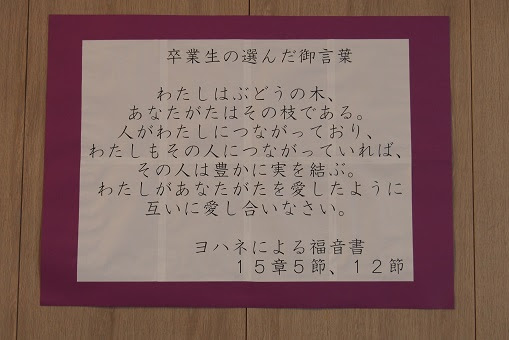 卒業生の選んだ御言葉
わたしはぶどうの木、
あなたがたはその枝である。
人がわたしにつながっており、
わたしもその人につながっていれば、
その人は豊かに実を結ぶ。
わたしがあなたがたを愛したように
互いに愛し合いなさい。
ヨハネによる福音書
１５章５節、１２節